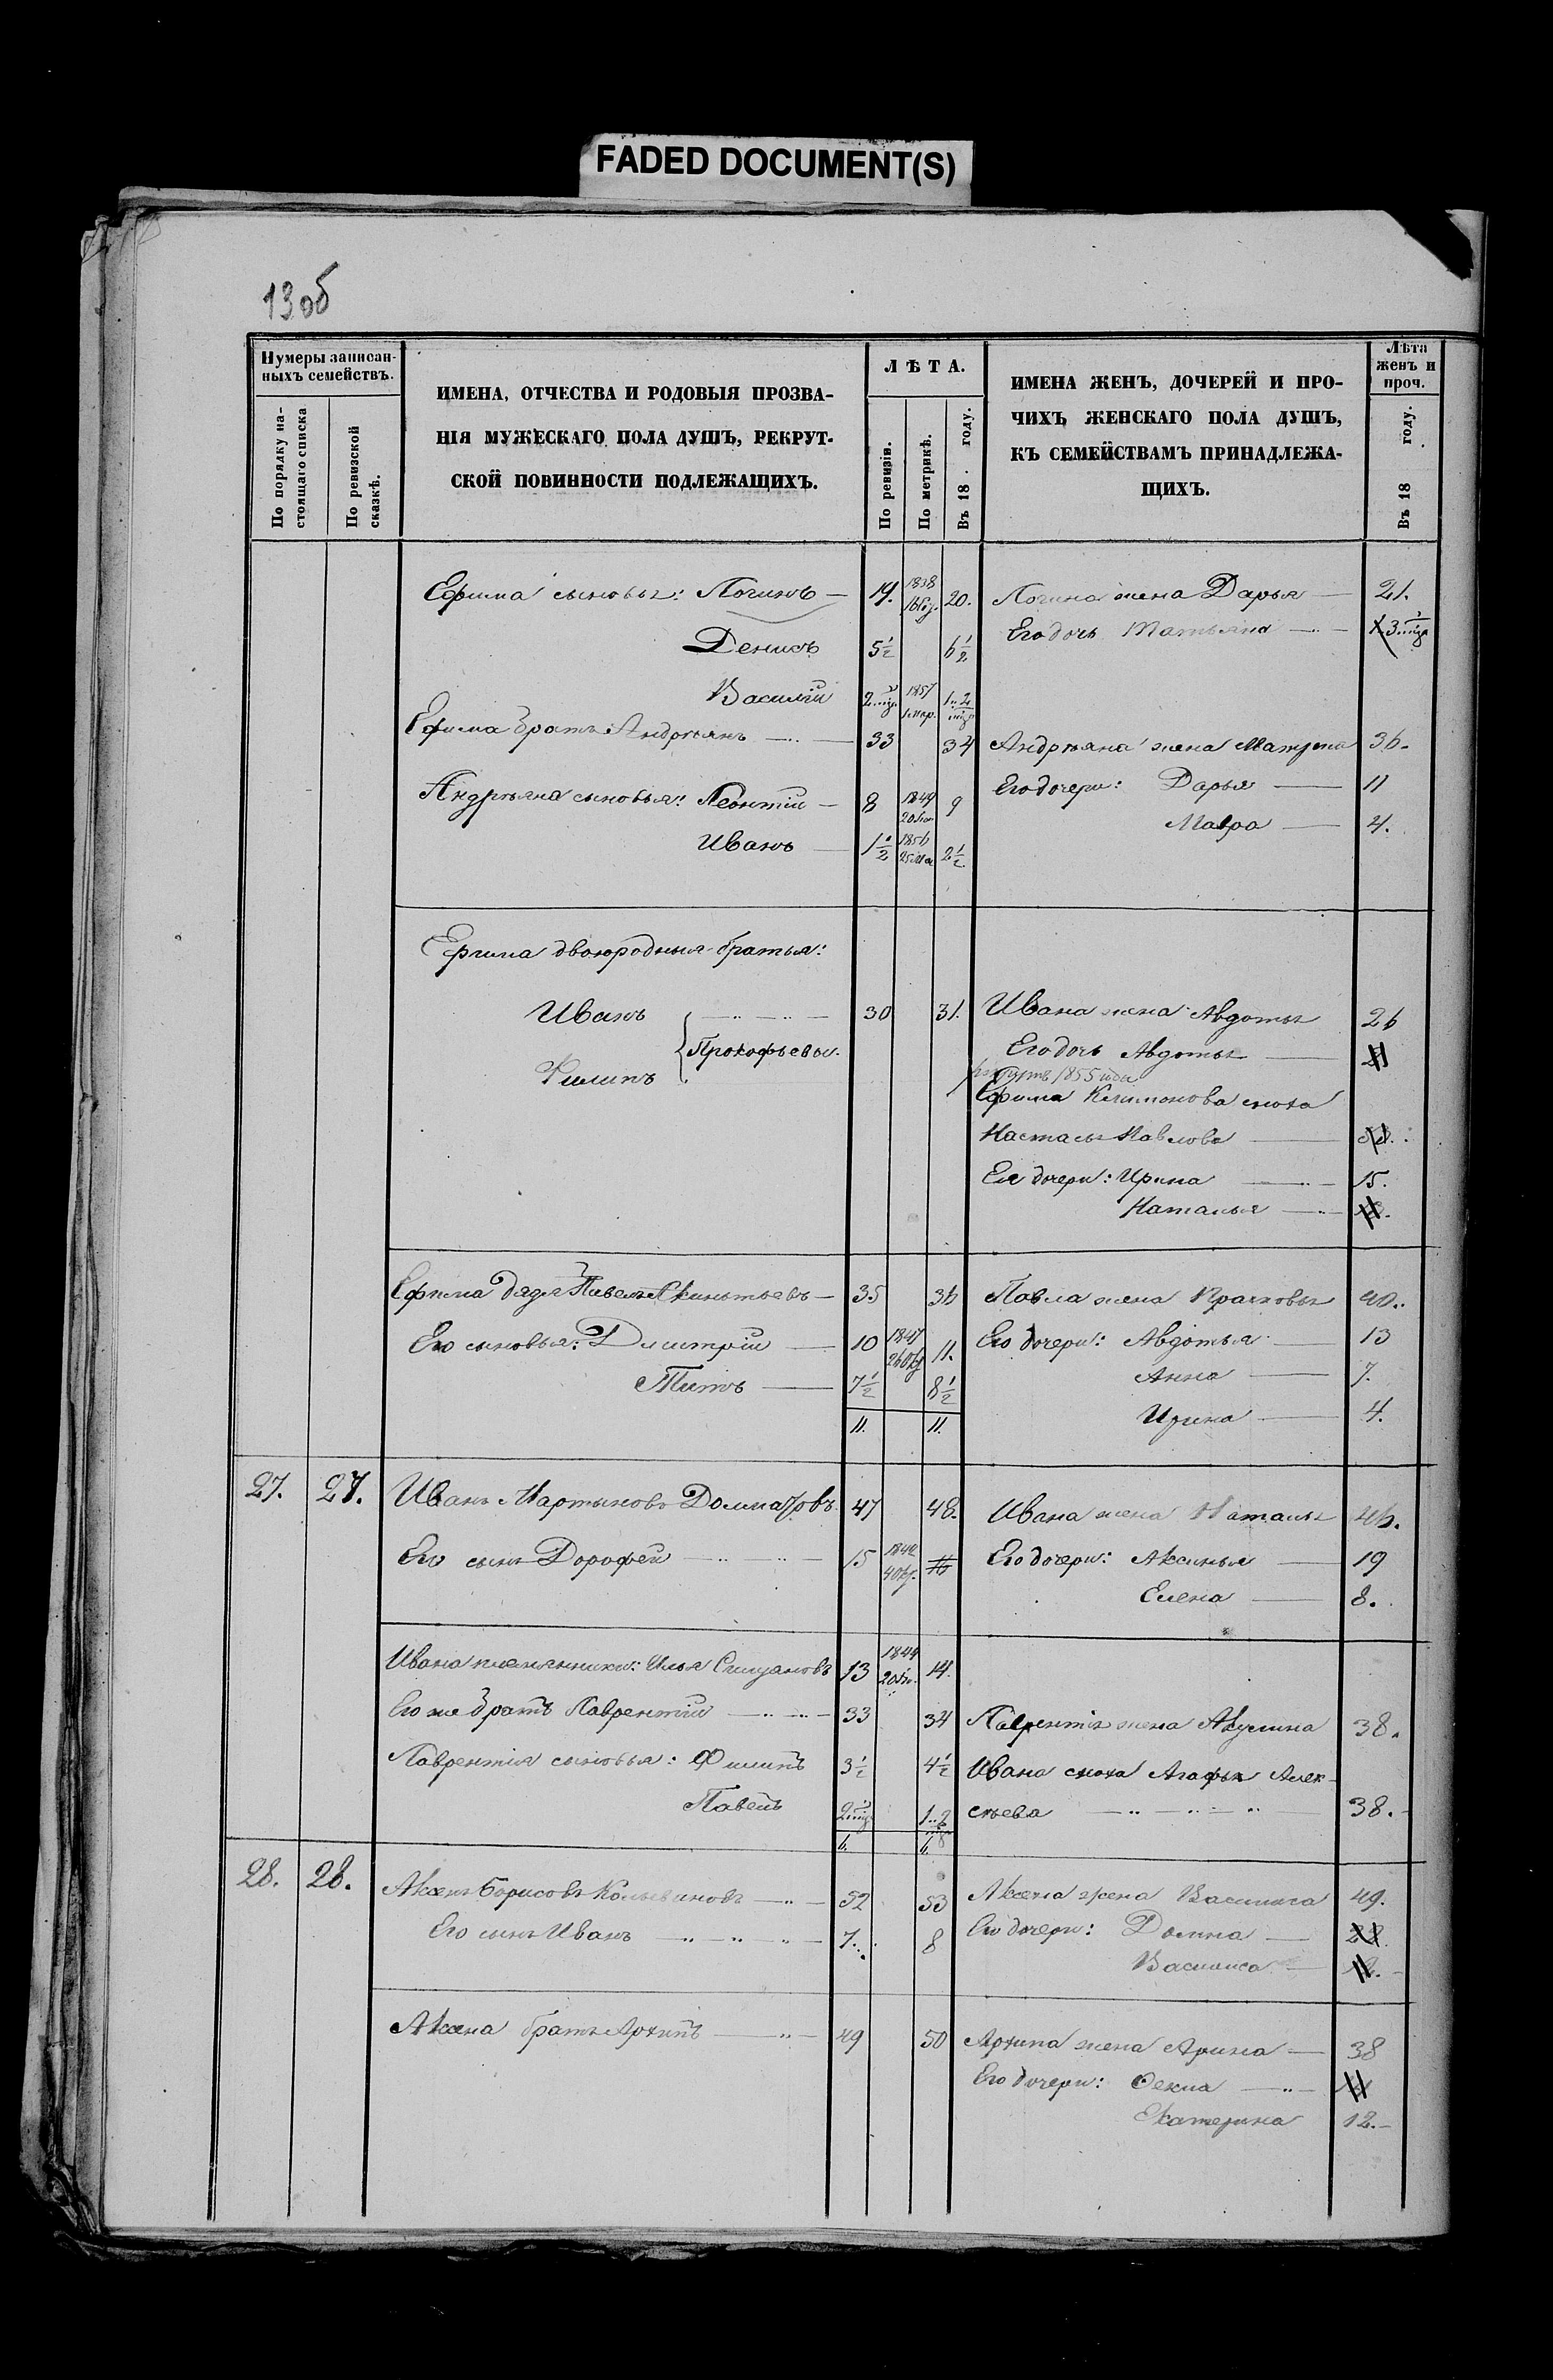 FADED DOCUMENT(S)
13об
Нумеры записан-
ныхъ семействъ.
По порядку на-
стоящаго списка
По ревизской
сказкѣ.
ИМЕНА, ОТЧЕСТВА И РОДОВЫЯ ПРОЗВА-
НІЯ МУЖЕСКАГО ПОЛА ДУШЪ, РЕКРУТ-
СКОЙ ПОВИННОСТИ ПОДЛЕЖАЩИХЪ.
ЛѢТА.
По ревизіи.
По метрикѣ.
Въ 18 . году.
ИМЕНА ЖЕНЪ, ДОЧЕРЕЙ И ПРО-
ЧИХЪ ЖЕНСКАГО ПОЛА ДУШЪ,
КЪ СЕМЕЙСТВАМЪ ПРИНАДЛЕЖА-
ЩИХЪ.
Лѣта
женъ и
проч.
Въ 18 . году.
Ефима сыновья: Логинъ — 19. 1838 20. Логина жена Дарья — 21.
Денисъ 5½ 6½ Его дочь Татьяна —
Василій 2 1857 1
Ефима братъ Андрѣянъ — 33 34 Андрѣяна жена Матрена 36.
Андрѣяна сыновья: Леонтій — 8 1849 9 Его дочери: Дарья — 11
Мавра — 4.
Иванъ — 1½ 1856 2½
Ефима двоюродныя братья:
Иванъ — 30 31. Ивана жена Авдотья 26
Прокофьевы.
Его дочь Авдотья —
Филипъ
рекрутъ 1855 года
Ефима сноха
Настасья Павлова —
Ея дочери: Ирина — 15.
Наталья —
Ефима дядя Павелъ — 35 36 Павла жена Прасковья 40.
Его сыновья: Дмитрій — 10 1847 11. Его дочери: Авдотья — 13
26 Окт
Титъ — 7½ 8½ Анна — 7.
11. 11. Ирина — 4.
27. 27. Иванъ Мартыновъ 47 48. Ивана жена Наталья 46.
Его сынъ Дорофей — 15 1842 Его дочери: Аксинья — 19
4 Окт.
Елена — 8.
Ивана племянники: Илья 13 1844 14.
Его же братъ Лаврентій — 33 34 Лаврентія жена Акулина 38.
Лаврентія сыновья: Филипъ 3½ 4½ Ивана сноха Агафья Алек-
Павелъ 2 1..2 сѣева — 38.
6. 6.
28. 28. Аксенъ Борисовъ — 52 53 Аксена жена Василиса 49.
Его сынъ Иванъ — 7. 8 Его дочери: Домна —
Василиса —
Аксена братъ Архипъ — 49 50 Архипа жена Арина — 38
Его дочери: Фекла —
Екатерина 12.